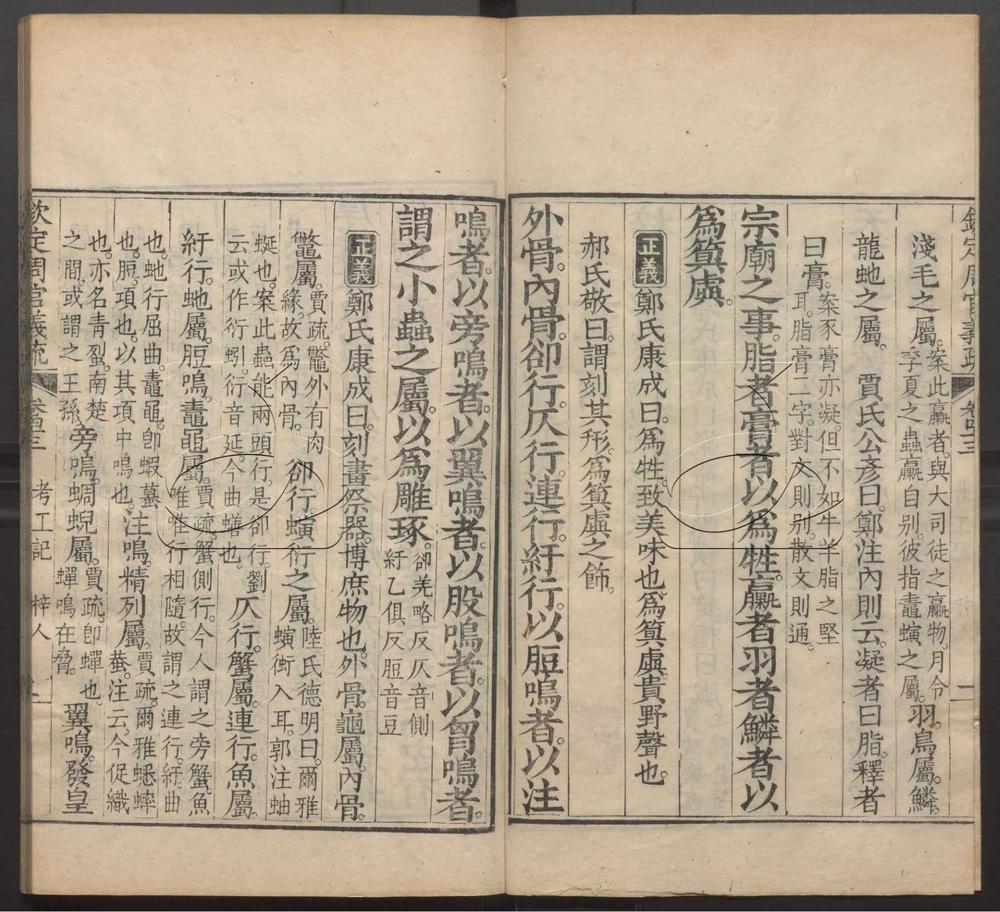 欽定周官義疏　卷四十三
淺毛之屬。案此臝者。與大司徒之臝物。月令季夏之蟲臝自別。彼指鼃螾之屬。羽。鳥屬。鱗。
龍虵之屬。　賈氏公彥曰。鄭注內則云。凝者曰脂。釋者
曰膏。案豕膏亦凝。但不如牛羊脂之堅耳。脂膏二字。對文則別。散文則通。
宗廟之事。脂者膏者以爲牲。臝者羽者鱗者以
爲簨虡。
正義鄭氏康成曰。爲牲。致美味也。爲簨虡。貴野聲也。
郝氏敬曰。謂刻其形。爲簨虡之飾。
外骨。內骨。卻行。仄行。連行。紆行。以脰鳴者。以注
鳴者。以旁鳴者。以翼鳴者。以股鳴者。以胷鳴者。
謂之小蟲之屬。以爲雕琢。卻羌略反仄音側紆乙俱反脰音豆
正義鄭氏康成曰。刻畫祭器。博庶物也。外骨。龜屬。內骨。
鼈屬。賈疏。鼈外有肉緣。故爲內骨。卻行。螾衍之屬。陸氏德明曰。爾雅螾衖入耳。郭注蚰
蜒也。案此蟲能兩頭行。是卻行。劉云或作衍蚓。衍音延。今曲蟮也。仄行。蟹屬。連行。魚屬。
紆行。虵屬。脰鳴。鼃黽屬。賈疏。蟹側行。今人謂之旁蟹。魚唯唯行相隨。故謂之連行。紆。曲
也。虵行屈曲。鼃黽。卽蝦蟇也。脰。項也。以其項中鳴也。注鳴。精列屬。賈疏。爾雅蟋蟀蛬。注云。今促織
也。亦名青𧊿。南楚之間。或謂之王孫。旁鳴。蜩蜺屬。賈疏。卽蟬也。蟬鳴在脅。翼鳴。發皇
欽定周官義疏　卷四十三　考工記　梓人